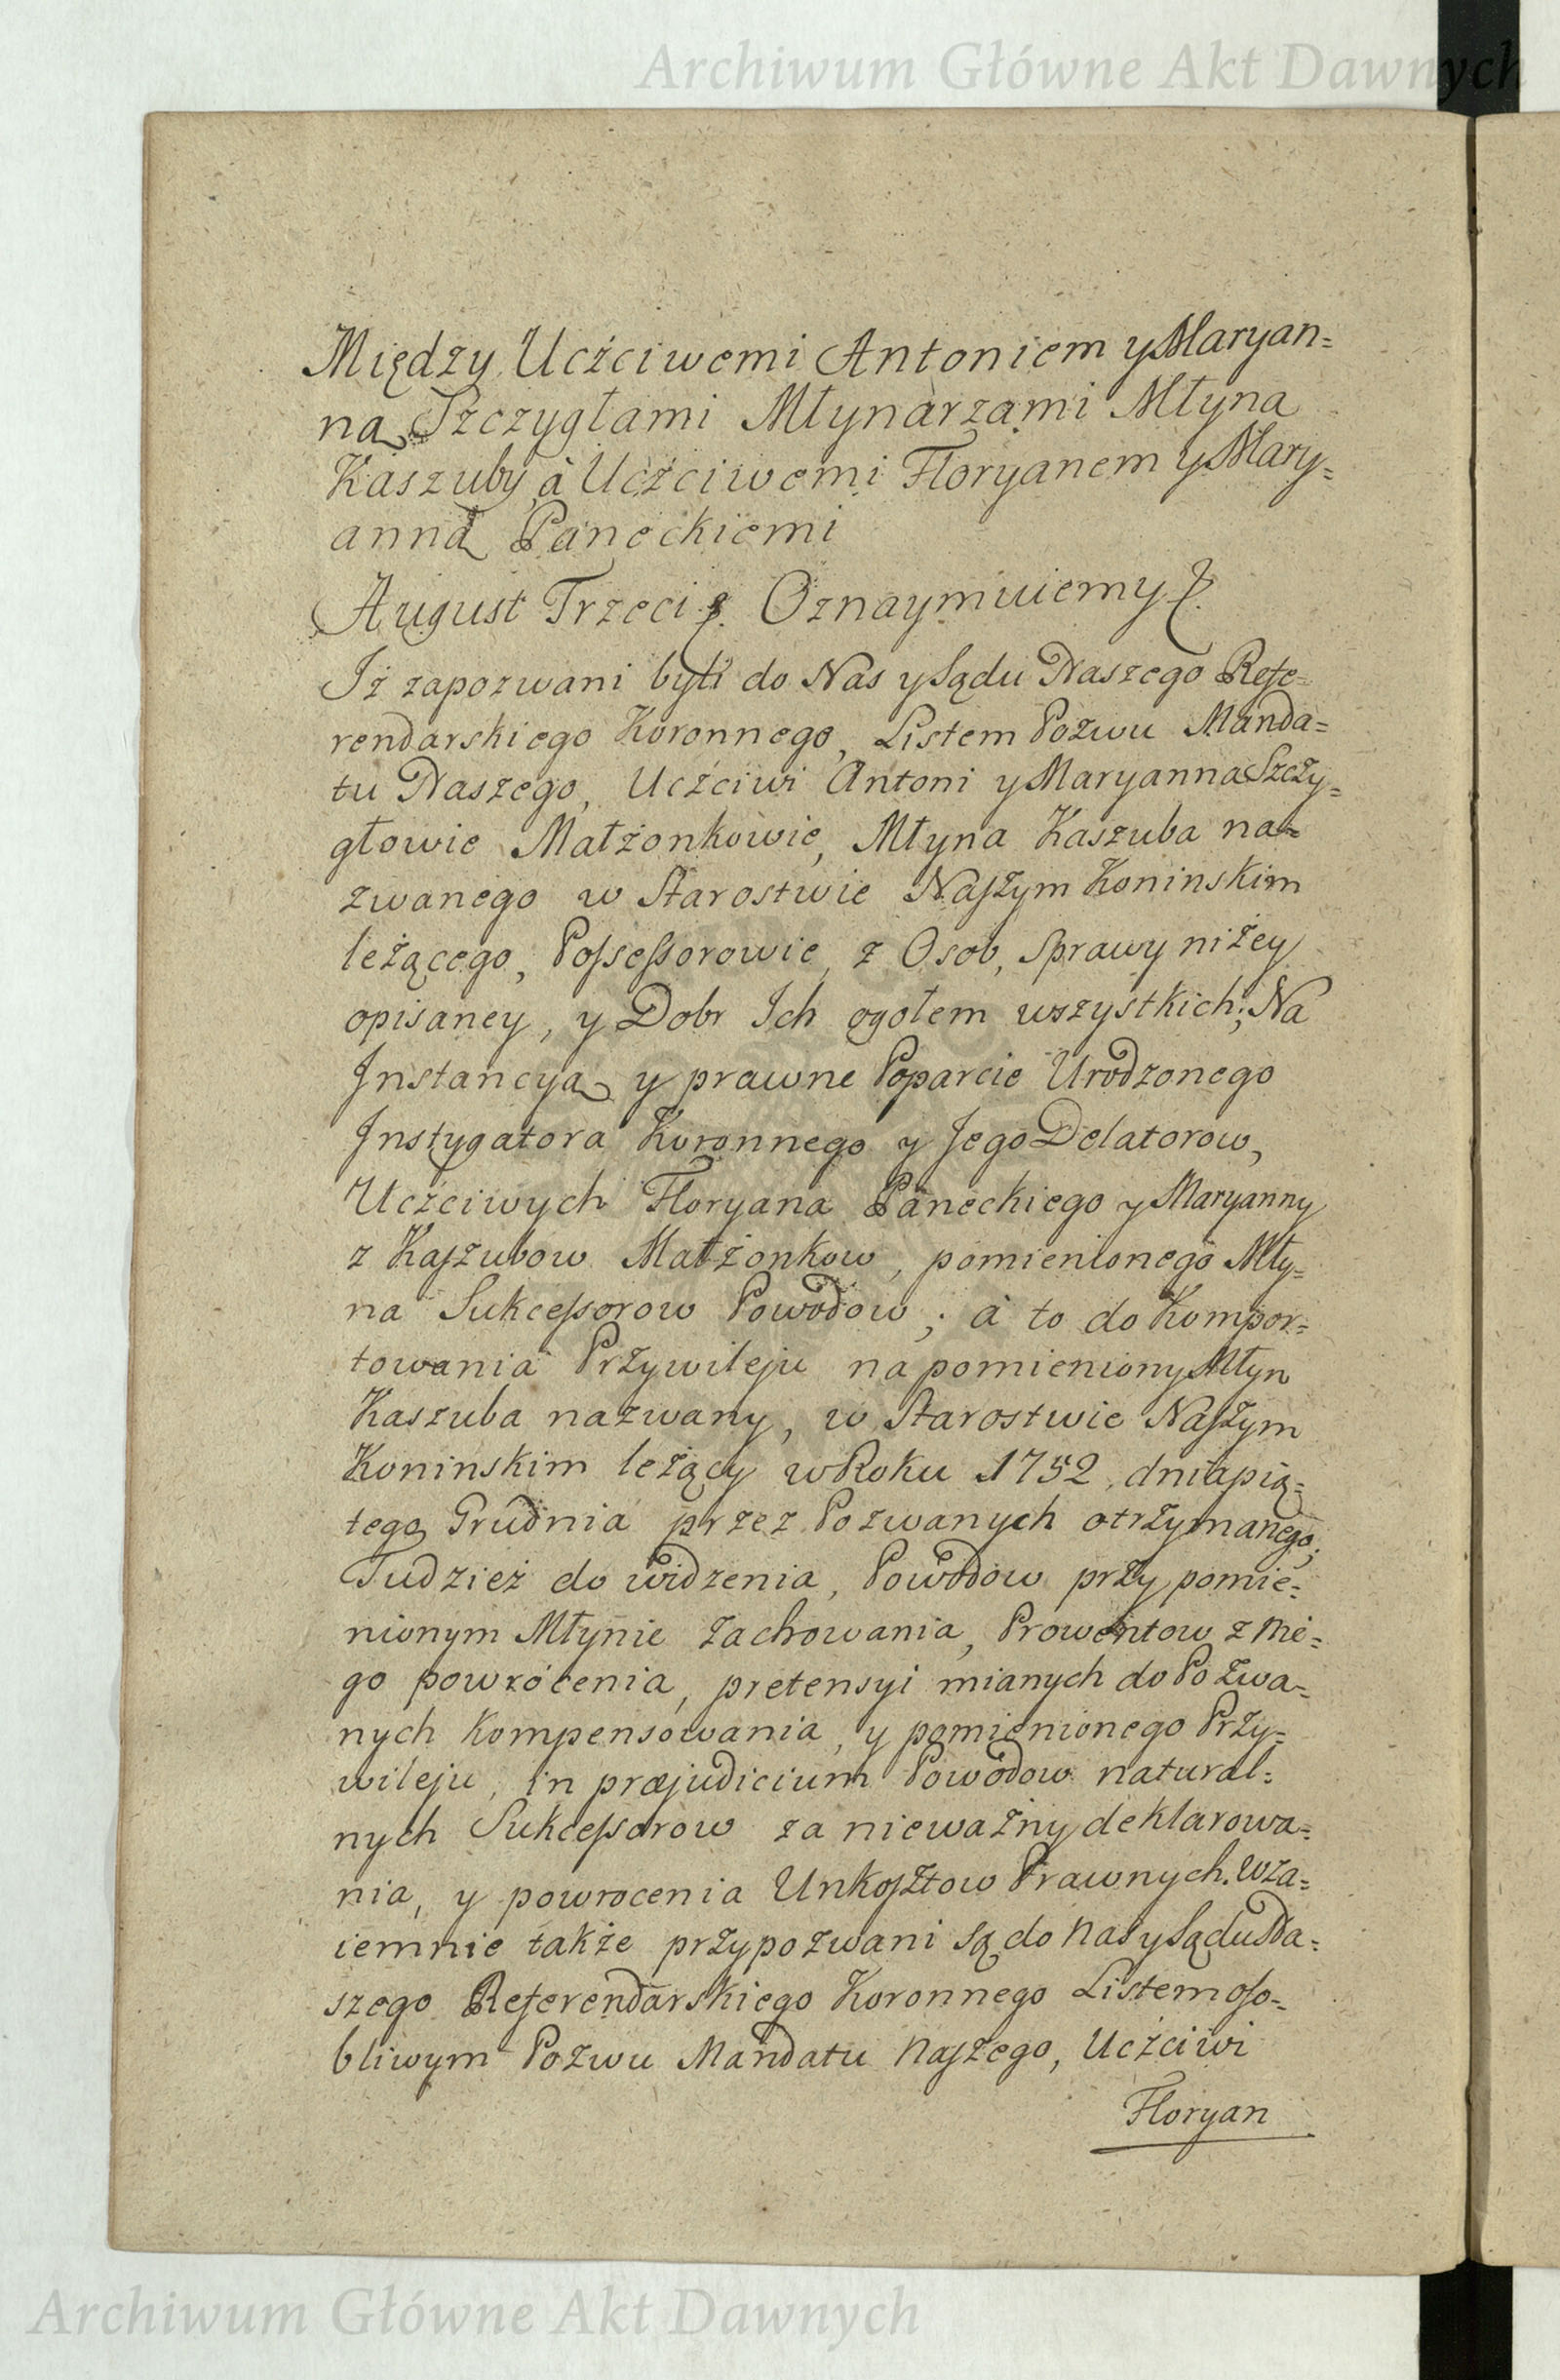 Archiwum Główne Akt Dawnych
Między Ucżciwemi Antoniem y Maryan=
ną Szczygłami Młynarzami Młyna
Kaszuby à Ucżciwemi Floryanem y Mary=
anną Paneckiemi
August Trzeci &. Oznaymuiemy &.
Iż zapozwani byli do Nas y Sądu Naszego Refe=
rendarskiego Koronnego, Listem Pozwu Manda=
tu Naszego, Ucżciwi Antoni y Maryanna Szczy=
głowie Małżonkowie, Młyna Kaszuba na=
zwanego w Starostwie Naszym Koninskim
leżącego, Possessorowie, z Osob, Sprawy niżey
opisaney, y Dobr Ich ogołem wszystkich; Na
Instancyą y prawne Poparcie Urodzonego
Instygatora Koronnego y Jego Delatorow,
Ucżciwych Floryana Paneckiego y Maryanny
z Kaszubow Małżonkow, pomienionego Mły=
na Sukcessorow Powodow; à to do Kompor=
towania Przywileju na pomieniony Młyn
Kaszuba nazwany, w Starostwie Naszym
Koninskim leżący w Roku 1752, dnia pią=
tego Grudnia przez Pozwanych otrzymanego;
Tudzież do widzenia, Powodow przy pomie=
nionym Młynie zachowania, Prowentow z nie=
go powrócenia, pretensyi mianych do Pozwa=
nych kompensowania, y pomienionego Przy=
wileju, in præjudicium Powodow natural=
nych Sukcessorow za nieważny deklarowa=
nia, y powrocenia Unkosztow Prawnych. Wza=
iemnie także przypozwani są do Nas y Sądu Na=
szego Referendarskiego Koronnego Listem oso=
bliwym Pozwu Mandatu Naszego, Ucżciwi
Floryan
Archiwum Główne Akt Dawnych